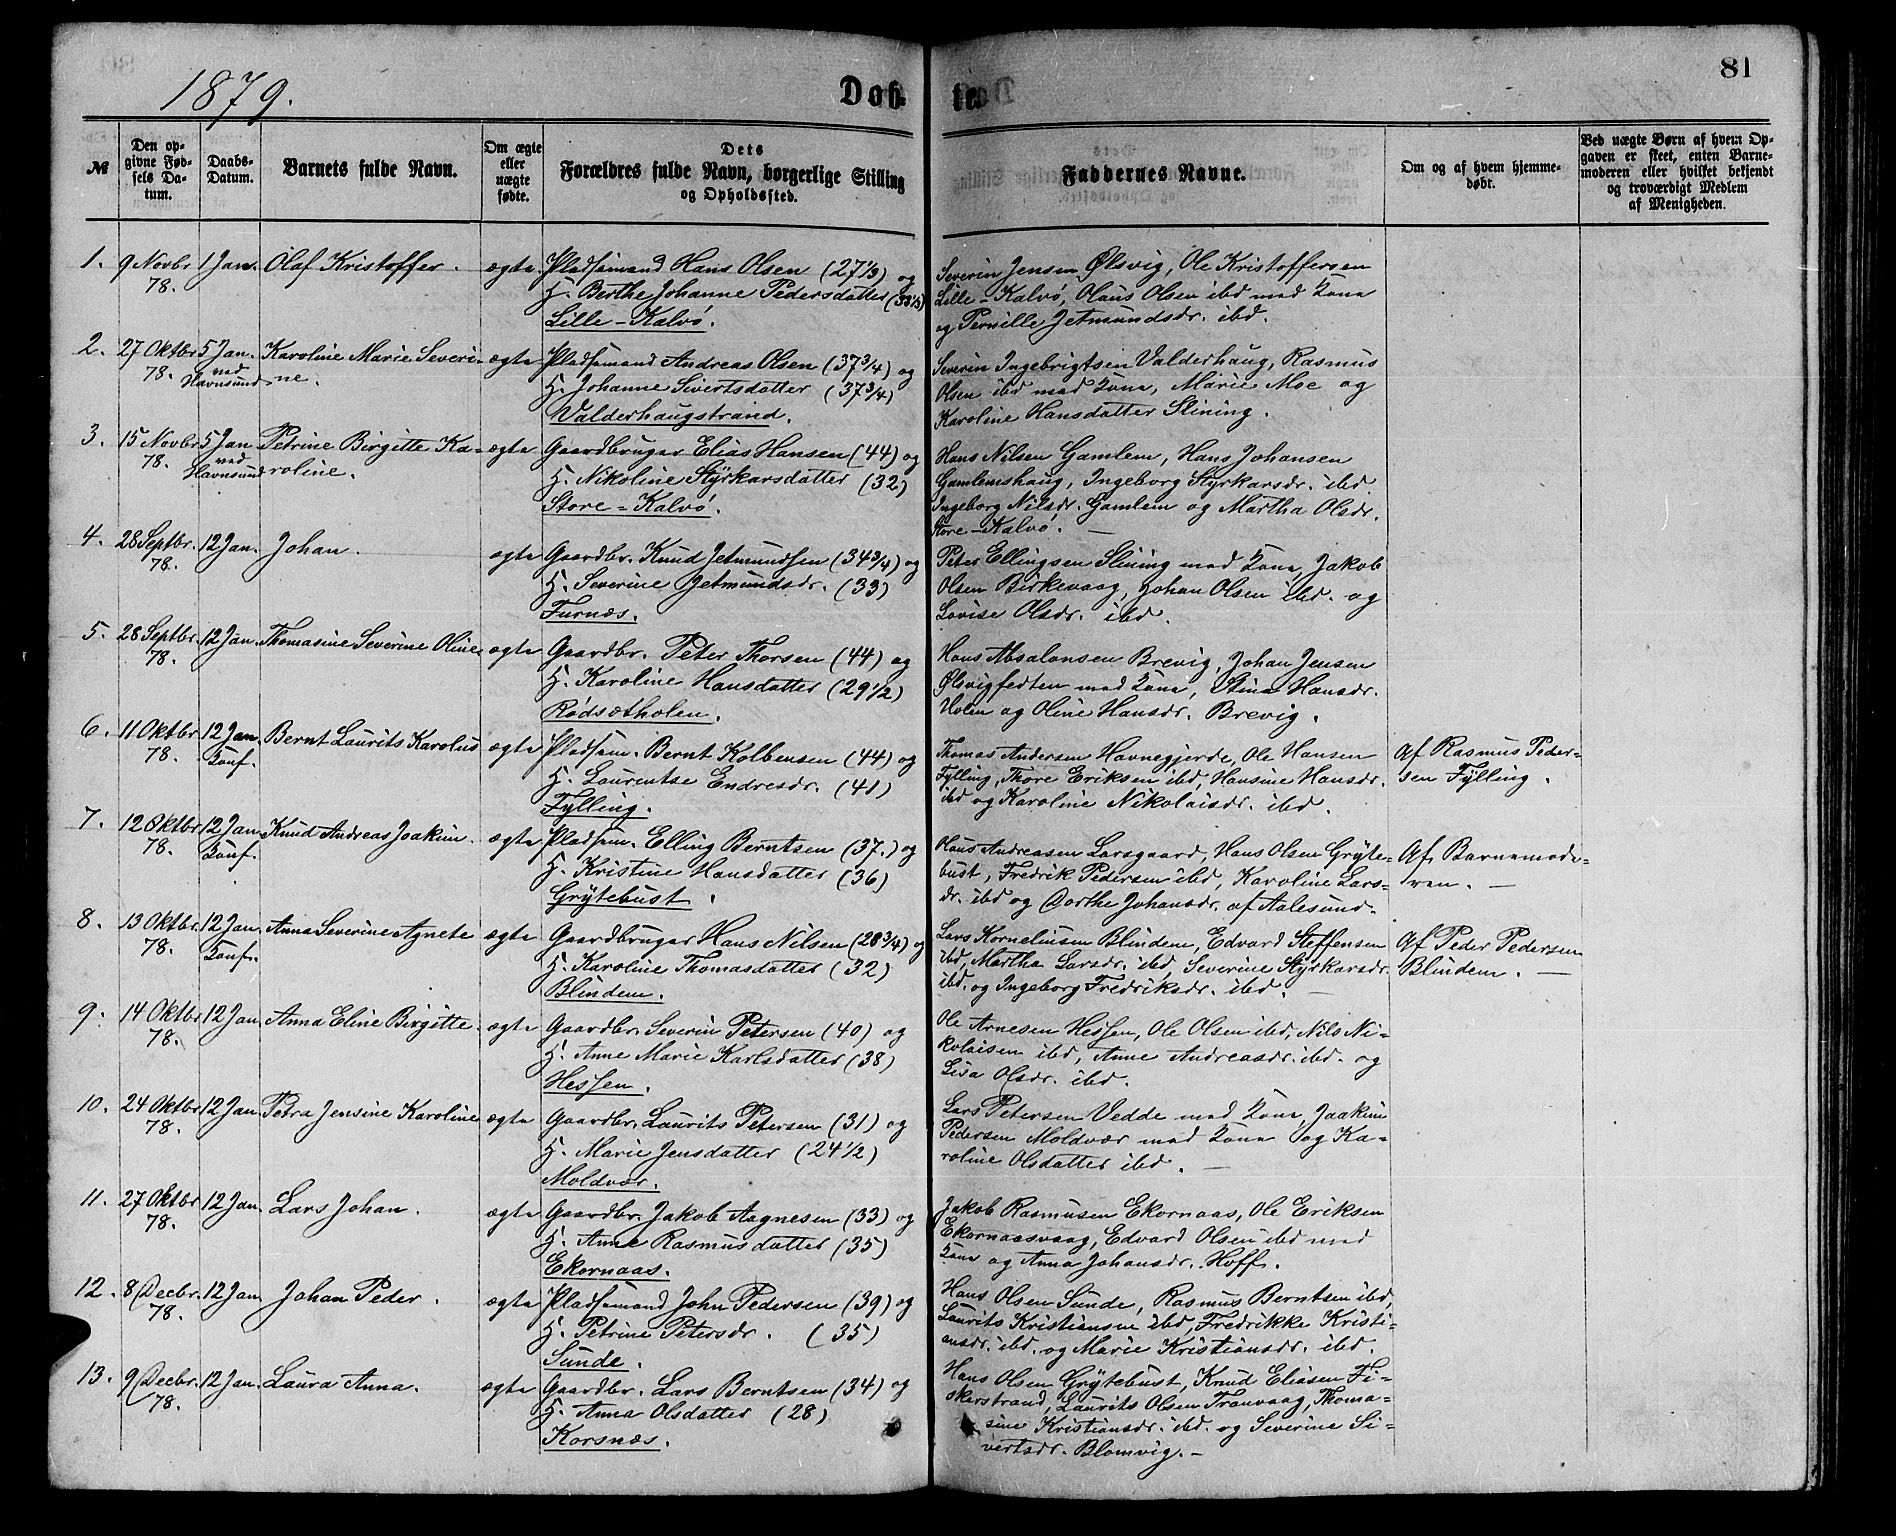 1879.
Døb-
te.
81
№
Den op-
givne Fød-
sels Da-
tum.
Daabs-
Datum.
Barnets fulde Navn.
Om ægte
eller
uægte
fødte.
Dets
Forældres fulde Navn, borgerlige Stilling
og Opholdssted.
Faddernes Navne.
Om og af hvem hjemme-
døbt.
Ved uægte Børn af hvem Op-
gaven er skeet, enten Barne-
moderen eller hvilket bekjendt
og troværdigt Medlem
af Menigheden.
1. 9 Novbr 1 Jan. Olaf Kristoffer. ægte Pladsemand Hans Olsen (27 1/3) og
78. H. Berthe Johanne Pedersdatter (33 1/3)
Lille-Kalvø.
Severin Jensen Ølsvig, Ole Kristoffersen
Lille-Kalvø, Olaus Olsen ibd med Kone
og Pernille Jetmundsdr. ibd.
2. 27 Oktbr 5 Jan. Karoline Marie Severi- ægte Pladsemand Andreas Olsen (37 3/4) og
78. ved Havnsund ne. H. Johanne Sivertsdatter (37 3/4)
Valderhaugstrand.
Severin Ingebrigtsen Valderhaug, Rasmus
Olsen ibd med Kone, Marie Moe og
Karoline Hansdatter Slining.
3. 15 Novbr 5 Jan Petrine Birgitte Ka- ægte Gaardbruger Elias Hansen (44) og
78. ved Havnsund roline. H. Nikoline Styrkarsdatter (32)
Store-Kalvø.
Hans Nilsen Gamlem, Hans Johansen
Gamlemshaug, Ingeborg Styrkarsdr. ibd
Ingeborg Nilsdr. Gamlem og Martha Olsdr.
Store-Kalvø.
4. 28 Septbr. 12 Jan. Johan. ægte Gaardbr. Knud Jetmundsen (34 3/4) og
78. H. Severine Jetmundsdr. (33)
Furnæs.
Peter Ellingsen Slining med Kone, Jakob
Olsen Birkevaag, Johan Olsen ibd. og
Lovise Olsdr. ibd.
5. 28 Septbr. 12 Jan. Thomasine Severine Oline. ægte Gaardbr. Peter Thorsen (44) og
78. H. Karoline Hansdatter (29 1/2)
Rødsætholen.
Hans Absalonsen Brevig, Johan Jensen
Ølsvigfedten med Kone, Stina Hansdr.
Holen og Oline Hansdr. Brevig.
6. 11 Oktbr 12 Jan. Bernt Laurits Karolus ægte Pladsem. Bernt Kolbensen (44) og
78. Konf. H. Laurentse Endresdr. (41)
Fylling.
Thomas Andersen Havnegjerde, Ole Hansen
Fylling, Thore Eriksen ibd, Hansine Hansdr.
ibd og Karoline Nikolaisdr. ibd.
Af Rasmus Peder-
sen Fylling.
7. 12 Oktbr 12 Jan Knud Andreas Joakim. ægte Pladsem. Elling Berntsen (37.) og
78. Konf. H. Kristine Hansdatter (36)
Grytebust.
Hans Andreasen Larsgaard, Hans Olsen Gryte-
bust, Fredrik Pedersen ibd, Karoline Lars-
dr. ibd og Dorthe Johansdr. af Aalesund.
Af Barnemode-
ren.
8. 13 Oktbr. 12 Jan. Anna Severine Agnete ægte Gaardbruger Hans Nilsen (28 3/4) og
78. Konf. H. Karoline Thomasdatter (32)
Blindem.
Lars Korneliusen Blindem, Edvard Steffensen
ibd, Martha Larsdr. ibd, Severine Styrkarsdr.
ibd. og Ingeborg Fredriksdr. ibd.
Af Peder Pedersen
Blindem.
9. 14 Oktbr 12 Jan. Anna Eline Birgitte. ægte Gaardbr. Severin Petersen (40) og
78. H. Anne Marie Karlsdatter (38)
Hessen.
Ole Arnesen Hessen, Ole Olsen ibd, Nils Ni-
kolaisen ibd, Anne Andreasdr. ibd. og
Lisa Olsdr. ibd.
10. 24 Oktbr 12 Jan Petra Jensine Karoline ægte Gaardbr. Laurits Petersen (31) og
78. H. Marie Jensdatter (24 1/2)
Moldvær.
Lars Petersen Vedde med Kone, Joakim
Pedersen Moldvær med Kone og Ka-
roline Olsdatter ibd.
11. 27 Oktbr 12 Jan. Lars Johan. ægte Gaardbr. Jakob Aagnesen (33) og
78. H. Anne Rasmusdatter (35)
Ekornaas.
Jakob Rasmusen Ekornaas, Ole Eriksen
Ekornaasvaag, Edvard Olsen ibd med
Kone og Anna Johansdr. Hoff.
12. 8 Decbr. 12 Jan. Johan Peder. ægte Pladsemand John Pedersen (39) og
78. H. Petrine Petersdr. (35)
Sunde.
Hans Olsen Sunde, Rasmus Berntsen ibd,
Laurits Kristiansen ibd, Fredrikke Kristi-
ansdr. ibd. og Marie Kristiansdr. ibd.
13. 9 Decbr. 12 Jan. Laura Anna. ægte Gaardbr. Lars Berntsen (34) og
78. H. Anna Olsdatter (28)
Korsnæs.
Hans Olsen Grytebust, Knud Eliasen Fi-
skerstrand, Laurits Olsen Tranvaag, Thoma-
sine Kristiansdr. ibd. og Severine Si-
vertsdr. Blomvig.